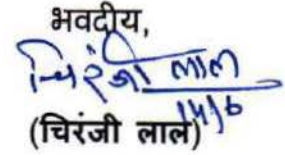 भवदीय,
चिरंजी लाल
14/6
(चिरंजी लाल)